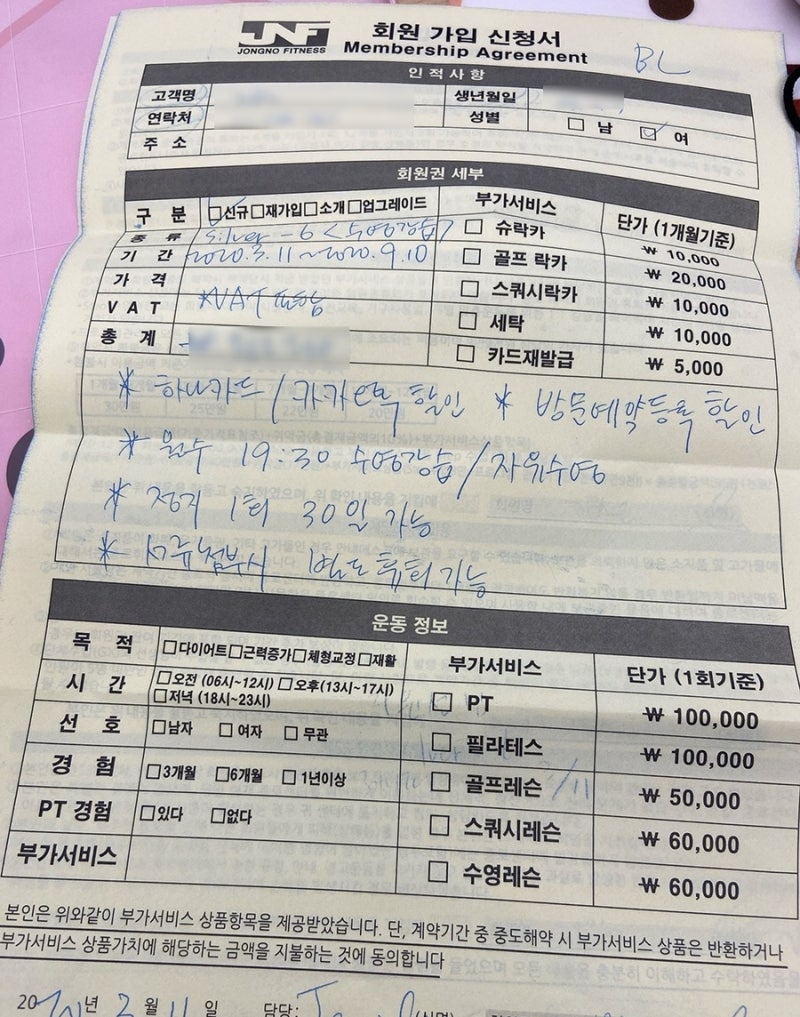 JNF
JONGNO FITNESS
회원 가입 신청서
Membership Agreement
BL
인적사항
고객명 생년월일
연락처 성별 □ 남 ☑ 여
주 소
회원권 세부
구 분 □신규□재가입□소개□업그레이드
부가서비스 단가 (1개월기준)
종 류 Silver-6 <수영강습>
기 간 2020.3.11~2020.9.10
가 격
VAT *VAT 포함
총 계
□ 슈락카 ₩ 10,000
□ 골프 락카 ₩ 20,000
□ 스쿼시락카 ₩ 10,000
□ 세탁 ₩ 10,000
□ 카드재발급 ₩ 5,000
* 하나카드 / 카카오톡 할인 * 방문예약등록 할인
* 월수 19:30 수영강습 / 자유수영
* 정지 1회 30일 가능
* 서류첨부시 별도 휴회 가능
운동 정보
목 적 □다이어트□근력증가□체형교정□재활
시 간 □오전 (06시~12시) □오후(13시~17시)
□저녁 (18시~23시)
선 호 □남자 □ 여자 □ 무관
경 험 □3개월 □6개월 □ 1년이상
PT 경험 □있다 □없다
부가서비스
부가서비스 단가 (1회기준)
□ PT ₩ 100,000
□ 필라테스 ₩ 100,000
□ 골프레슨 ₩ 50,000
□ 스쿼시레슨 ₩ 60,000
□ 수영레슨 ₩ 60,000
본인은 위와같이 부가서비스 상품항목을 제공받았습니다. 단, 계약기간 중 중도해약 시 부가서비스 상품은 반환하거나
부가서비스 상품가치에 해당하는 금액을 지불하는 것에 동의합니다
2020년 3월 11일 담당: